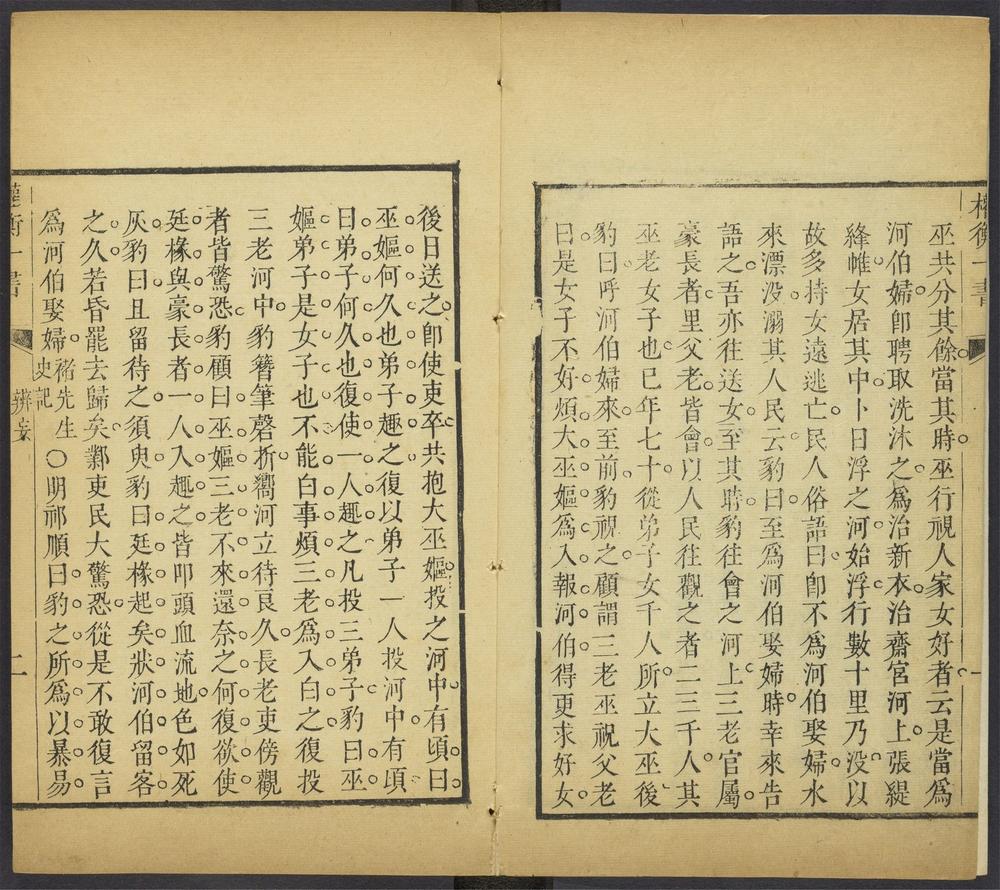 權衡一書
一
巫共分其餘當其時巫行視人家女好者云是當爲
河伯婦卽聘取洗沐之爲治新衣治齋宮河上張緹
絳帷女居其中卜日浮之河始浮行數十里乃没以
故多持女遠逃亡民人俗語曰卽不爲河伯娶婦水
來漂没溺其人民云豹曰至爲河伯娶婦時幸來告
語之吾亦往送女至其時豹往會之河上三老官屬
豪長者里父老皆會以人民往觀之者二三千人其
巫老女子也已年七十從弟子女千人所立大巫後
豹曰呼河伯婦來至前豹視之顧謂三老巫祝父老
曰是女子不好煩大巫嫗爲入報河伯得更求好女
後日送之卽使吏卒共抱大巫嫗投之河中有頃曰
巫嫗何久也弟子趣之復以弟子一人投河中有頃
曰弟子何久也復使一人趣之凡投三弟子豹曰巫
嫗弟子是女子也不能白事煩三老爲入白之復投
三老河中豹簪筆磬折嚮河立待良久長老吏傍觀
者皆驚恐豹顧曰巫嫗三老不來還奈之何復欲使
廷椽與豪長者一人入趣之皆叩頭血流地色如死
灰豹曰且留待之須臾豹曰廷椽起矣狀河伯留客
之久若昏罷去歸矣鄴吏民大驚恐從是不敢復言
爲河伯娶婦褚先生史記○明祁順曰豹之所爲以暴易
權衡一書
辨妄
二